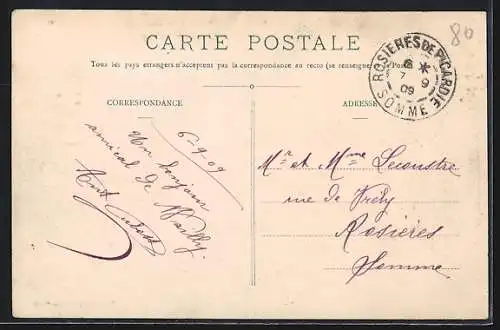 CARTE POSTALE
Tous les pays étrangers n'acceptent pas la correspondance au recto (se renseigner
80
ROSIERES DE PICARDIE
6 *
7 9
09
SOMME
CORRESPONDANCE
ADRESSE
6-9-09
Un bonjour
amical de Mailly.
Mr et Mme Lecoustre
rue de Vrély
Rosières
Somme